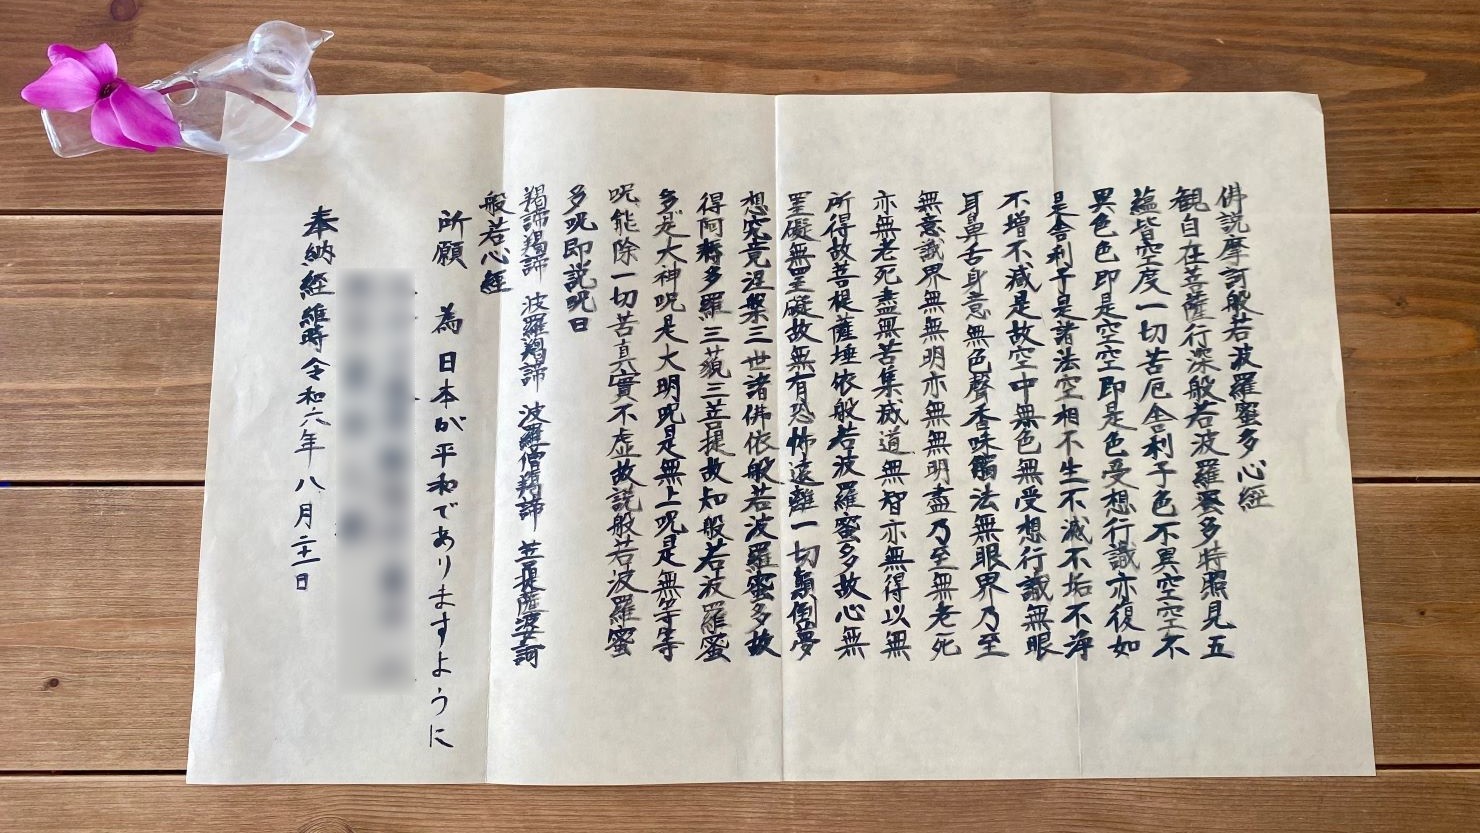 佛説摩訶般若波羅蜜多心経
観自在菩薩行深般若波羅蜜多時照見五
蘊皆空度一切苦厄舎利子色不異空空不
異色色即是空空即是色受想行識亦復如
是舎利子是諸法空相不生不滅不垢不浄
不増不減是故空中無色無受想行識無眼
耳鼻舌身意無色聲香味觸法無眼界乃至
無意識界無無明亦無無明盡乃至無老死
亦無老死盡無苦集滅道無智亦無得以無
所得故菩提薩埵依般若波羅蜜多故心無
罣礙無罣礙故無有恐怖遠離一切顛倒夢
想究竟涅槃三世諸佛依般若波羅蜜多故
得阿耨多羅三藐三菩提故知般若波羅蜜
多是大神呪是大明呪是無上呪是無等等
呪能除一切苦真實不虚故説般若波羅蜜
多呪即説呪曰
羯諦羯諦 波羅羯諦 波羅僧羯諦 菩提薩婆訶
般若心經
所願 為 日本が平和でありますように
奉納経維時令和六年八月二十一日